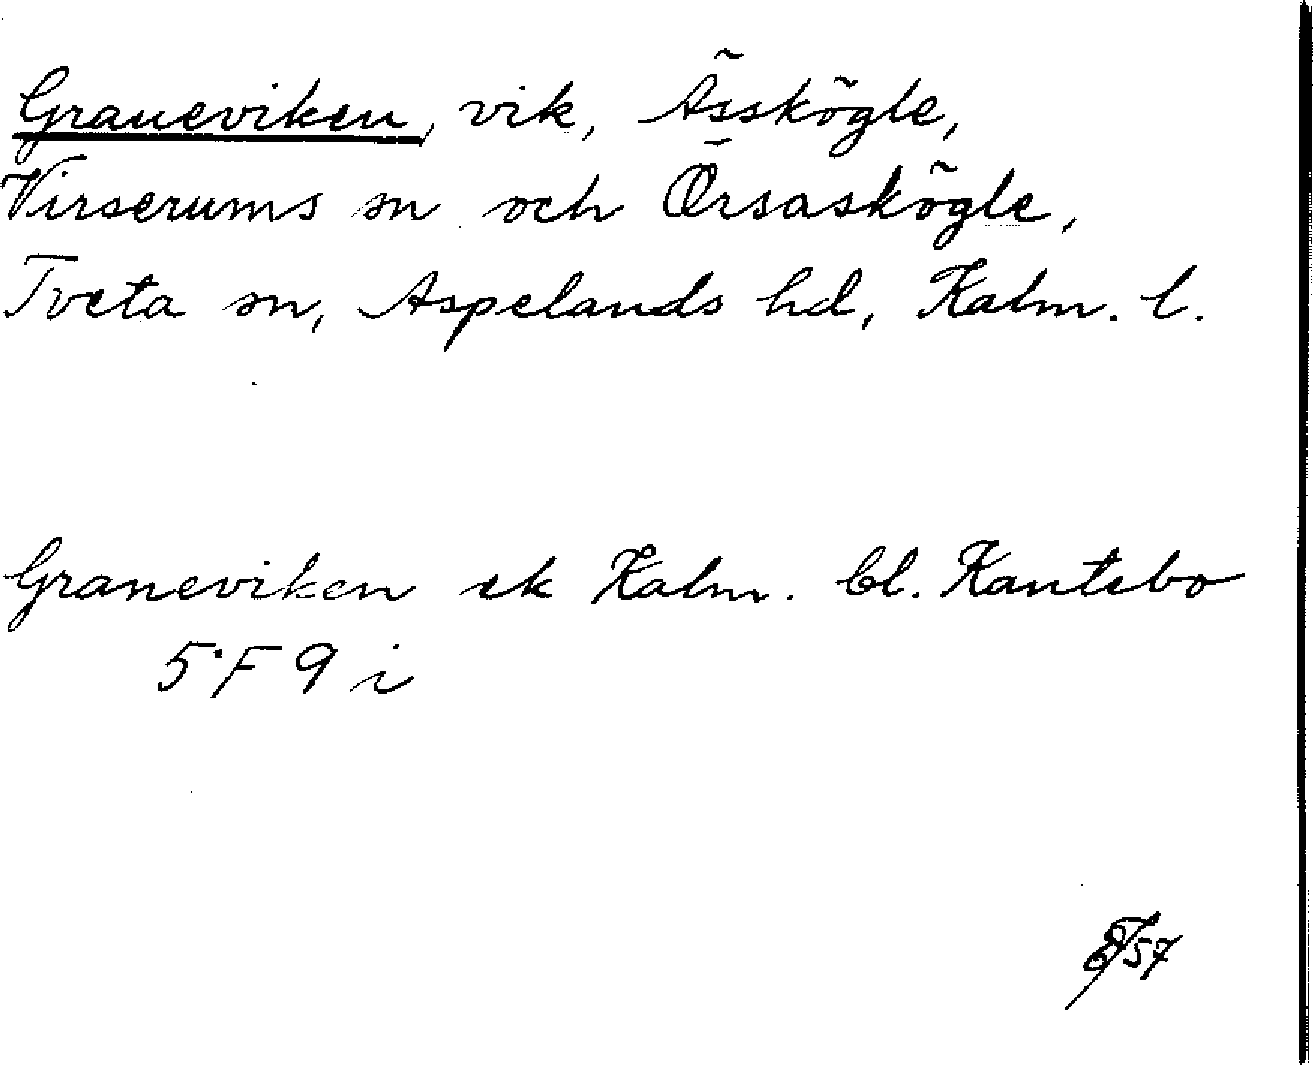 Graneviken, vik, Ässkögle,
Virserums sn och Örsaskögle,
Tveta sn, Aspelands hd, Kalm. l.
Graneviken ek Kalm. bl. Kantebo
5 F 9 i
57